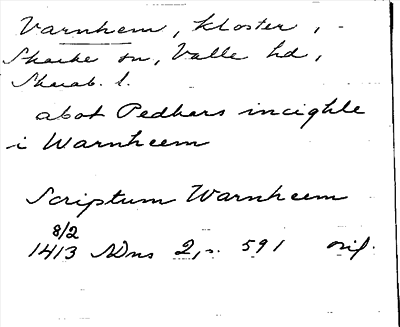 Varnhem, kloster,
Skarke sn, Valle hd,
Skarab. l.
abot Pedhars incighle
i Warnheem
Scriptum Warnheem
8/2
1413 SDns 2, s. 591 orig.